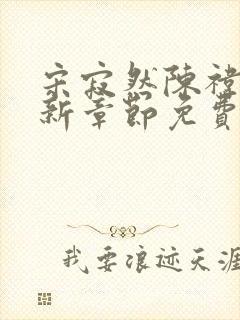 宋寂然陳禕
新章節免費
我要浪迹天涯